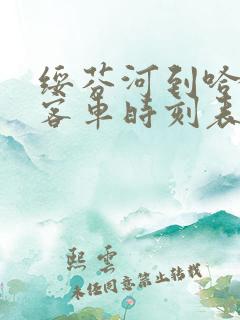 绥芬河到哈
客车时刻表
熙雲
未经同意禁止转载